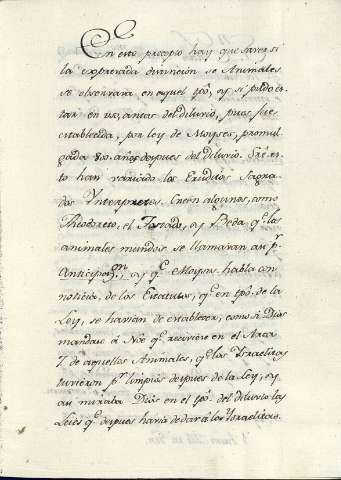 En este precepto hay que saver, si
la expresada distincion de Animales
se observava en aquel tpô, ô si pudo es-
tar en uso, antes del diluvio, pues fue
establecida, por ley de Moyses, promul-
gada 800 años despues del diluvio. Sre es-
to han variado los Eruditos Sagra-
dos Ynterpretes. Creen algunos, como
Theodoreto, el Tostado, ô y Beda q.e los
animales mundos se llamavan asi p.r
Anticipaz.on, y q.e Moyses habla con
noticia, de los Estatutos, q.e en tpô. de la
Ley, se havian de establecer, como si Dios
mandara â Noe q.e recivièse en el Arca
7 de aquellos Animales, q.e los Ysraelitas
tuvieron p.r limpios despues de la Ley, y
asi mirava Dios en el tpô. del diluvio las
Leies q.e despues havia de dar â los Ysraelitas.